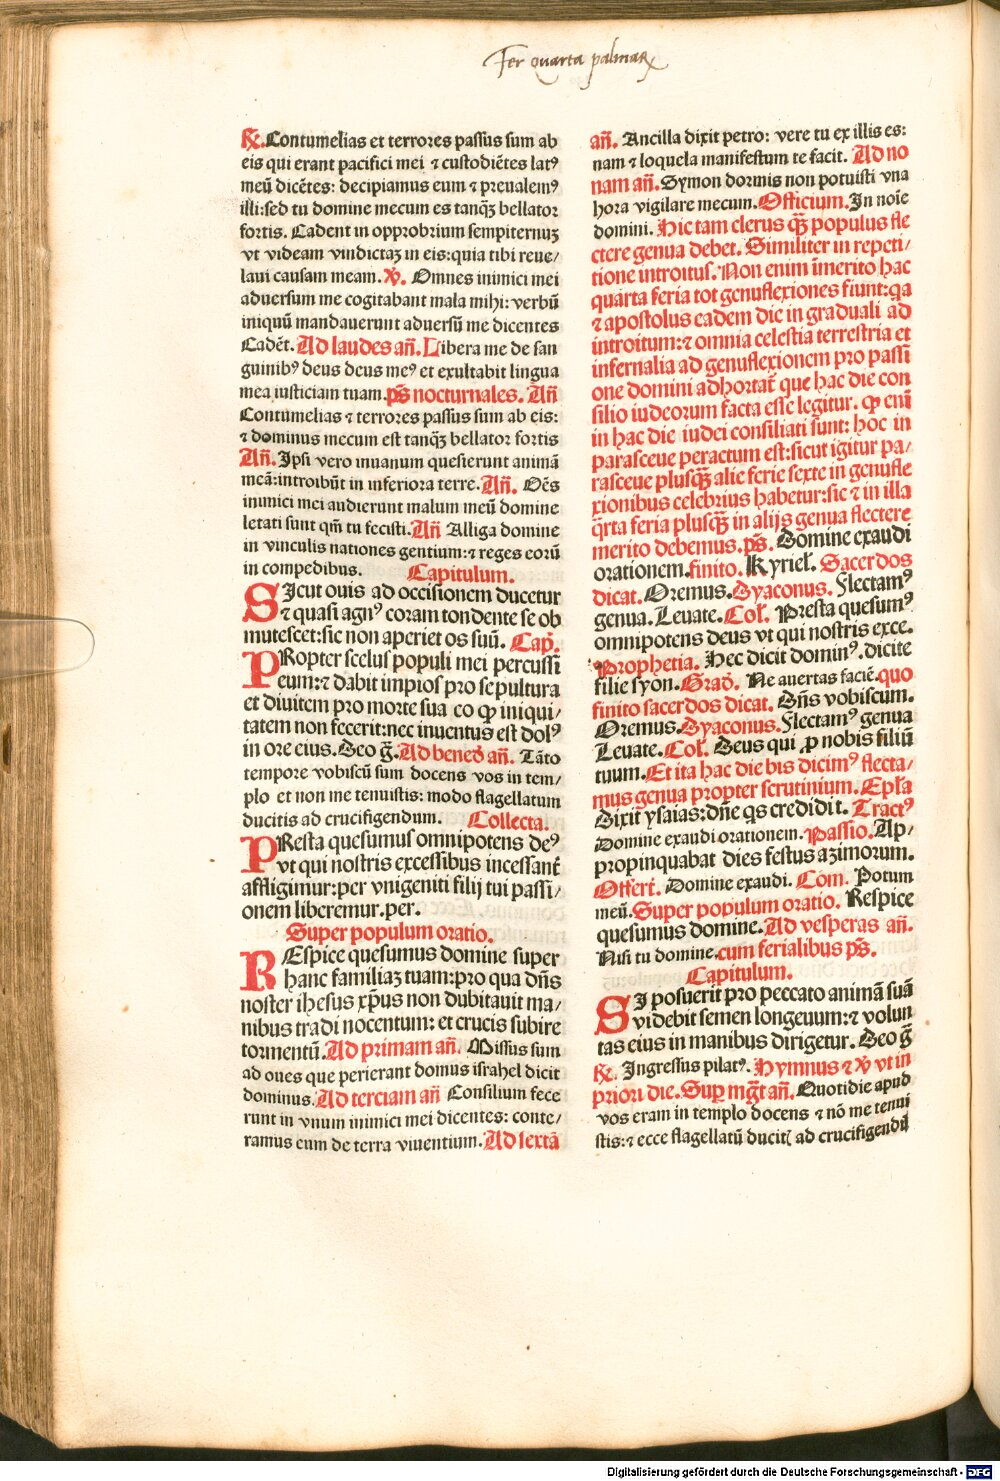 Fer quarta palmaꝝ
℟. Contumelias et terrores passus sum ab
eis qui erant pacifici mei ⁊ custodiētes latꝰ
meū dicētes: decipiamus eum ⁊ preualemꝰ
illi: sed tu domine mecum es tanqꝫ bellator
fortis. Cadent in opprobrium sempiternuꝫ
vt videam vindictaꝫ in eis: quia tibi reue/
laui causam meam. ℣. Omnes inimici mei
aduersum me cogitabant mala mihi: verbū
iniquū mandauerunt aduersū me dicentes
Cadēt. Ad laudes añ. Libera me de san
guinibꝰ deus deus meꝰ et exultabit lingua
mea iusticiam tuam. p̄s nocturnales. Añ
Contumelias ⁊ terrores passus sum ab eis:
⁊ dominus mecum est tanqꝫ bellator fortis
Añ. Ipsi vero inuanum quesierunt animā
meā: introibūt in inferiora terre. Añ. Oēs
inimici mei audierunt malum meū domine
letati sunt qm̄ tu fecisti. Añ Alliga domine
in vinculis nationes gentium: ⁊ reges eorū
in compedibus. Capitulum.
SIcut ouis ad occisionem ducetur
⁊ quasi agnꝰ coram tondente se ob
mutescet: sic non aperiet os suū. Capᷣ.
PRopter scelus populi mei percussi
eum: ⁊ dabit impios pro sepultura
et diuitem pro morte sua eo ꝙ iniqui/
tatem non fecerit: nec inuentus est dolꝰ
in ore eius. Deo g̅. Ad bened̄ añ. Tāto
tempore vobiscū sum docens vos in tem/
plo et non me tenuistis: modo flagellatum
ducitis ad crucifigendum. Collecta.
PResta quesumus omnipotens deꝰ
vt qui nostris excessibus incessant̄
affligimur: per vnigeniti filij tui passi/
onem liberemur. per.
Super populum oratio.
REspice quesumus domine super
hanc familiaꝫ tuam: pro qua dn̄s
noster ihesus xp̄us non dubitauit ma/
nibus tradi nocentum: et crucis subire
tormentū. Ad primam añ. Missus sum
ad oues que perierant domus israhel dicit
dominus. Ad terciam añ Consilium fece
runt in vnum inimici mei dicentes: conte/
ramus eum de terra viuentium. Ad sextā
añ. Ancilla dixit petro: vere tu ex illis es:
nam ⁊ loquela manifestum te facit. Ad no
nam añ. Symon dormis non potuisti vna
hora vigilare mecum. Officium. In noīe
domini. Hic tam clerus qꝫ populus fle
ctere genua debet. Similiter in repeti/
tione introitus. Non enim īmerito hac
quarta feria tot genuflexiones fiunt: qa
⁊ apostolus eadem die in graduali ad
introitum: ⁊ omnia celestia terrestria et
infernalia ad genuflexionem pro passi
one domini adhortat̄ que hac die con
silio iudeorum facta esse legitur. ꝙ enī
in hac die iudei consiliati sunt: hoc in
parasceue peractum est: sicut igitur pa/
rasceue plusqꝫ alie ferie sexte in genufle
xionibus celebrius habetur: sic ⁊ in illa
q̄rta feria plusqꝫ in alijs genua flectere
merito debemus. p̄s. Domine exaudi
orationem. finito. Kyriel̄. Sacerdos
dicat. Oremus. Dyaconus. Flectamꝰ
genua. Leuate. Col̄. Presta quesumꝰ
omnipotens deus vt qui nostris exce.
Prophetia. Hec dicit dominꝰ. dicite
filie syon. Grad̄. Ne auertas faciē. quo
finito sacerdos dicat. Dn̄s vobiscum.
Oremus. Dyaconus. Flectamꝰ genua
Leuate. Col̄. Deus qui ꝓ nobis filiū
tuum. Et ita hac die bis dicimꝰ flecta/
mus genua propter scrutinium. Epl̄a
Dixit ysaias: dn̄e qs credidit. Tractꝰ
Domine exaudi orationem. Passio. Ap/
propinquabat dies festus azimorum.
Offert̄. Domine exaudi. Com. Potum
meū. Super populum oratio. Respice
quesumus domine. Ad vesperas añ.
Nisi tu domine. cum ferialibus p̄s.
Capitulum.
SI posuerit pro peccato animā suā
videbit semen longeuum: ⁊ volun
tas eius in manibus dirigetur. Deo g̅
℟. Ingressus pilatꝰ. Hymnus ⁊ ℣ vt in
priori die. Suꝑ mg̅t añ. Quotidie apud
vos eram in templo docens ⁊ nō me tenui
stis: ⁊ ecce flagellatū ducitꝭ ad crucifigendū
Digitalisierung gefördert durch die Deutsche Forschungsgemeinschaft - DFG